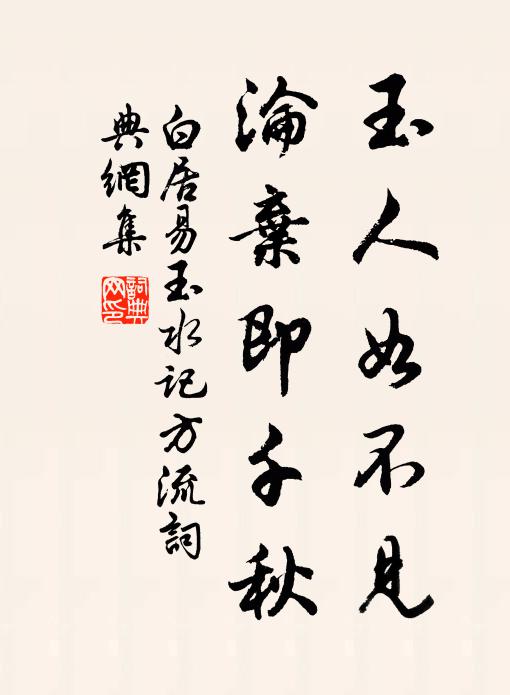 玉人如不見
淪棄即千秋
白居易玉水記方流詞
典網集
詞典
网印